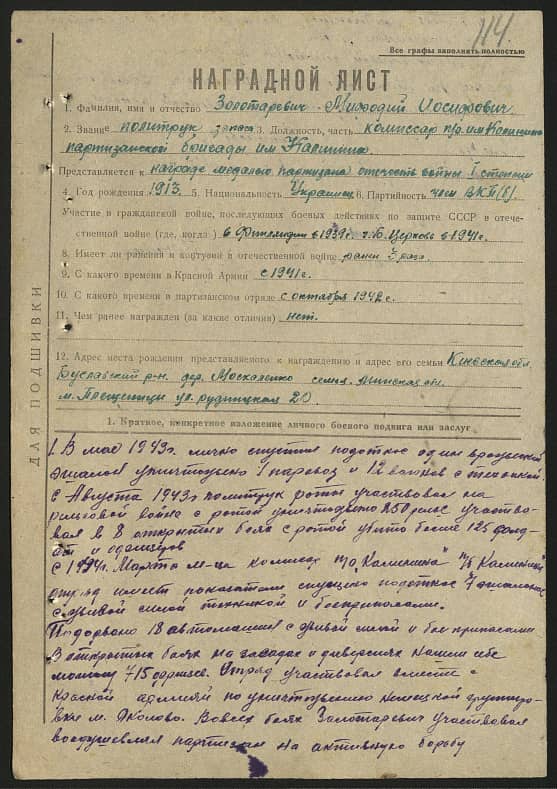 114.
Все графы заполнять полностью
НАГРАДНОЙ ЛИСТ
1. Фамилия, имя и отчество Золотаревич Мифодий Иосифович
2. Звание политрук запаса 3. Должность, часть комиссар п/о им Калинина
партизанской бригады им Калинина
Представляется к награде медалью партизана отечеств войны I степени
4. Год рождения 1913. 5. Национальность Украинец 6. Партийность член ВКП(б)
Участие в гражданской войне, последующих боевых действиях по защите СССР в отече-
ственной войне (где, когда) в Финляндии в 1939г. г. Б. Церковь в 1941г.
8. Имеет ли ранения и контузии в отечественной войне ранен 3 раза
9. С какого времени в Красной Армии с 1941г.
10. С какого времени в партизанском отряде с октября 1942г.
11. Чем ранее награжден (за какие отличия) нет.
12. Адрес места рождения представляемого к награждению и адрес его семьи Киевская обл
Буславский р-н. дер. Москаленко семья Минская обл.
м. ул. 20
ДЛЯ ПОДШИВКИ
1. Краткое, конкретное изложение личного боевого подвига или заслуг
1. В мае 1943г. лично спустил подоткос один вражеский
эшалон уничтожено 1 паровоз и 12 вагонов с техникой.
С Августа 1943г политрук роты участвовал на
рельсовой войне с ротой уничтожено 250 рельс участво-
вал в 8 открытых боях с ротой убито более 125 солд-
ат и офицеров
с 1944г. Марта м-ца комисар п/о "Калинина" п/б Калинина
отряд имеет показатели спущено подоткос 7 эшалонов
с живой силой техникой и боеприпасами.
Подорвано 18 автомашин с живой силой и боеприпасами
В открытых боях на засадах и диверсиях нанесли
715 Отряд участвовал вместе с
красной армией по уничтожению немецкой группиро-
вке м. Вовсех боях Золотаревич участвовал
воодушевлял партизан на активную борьбу